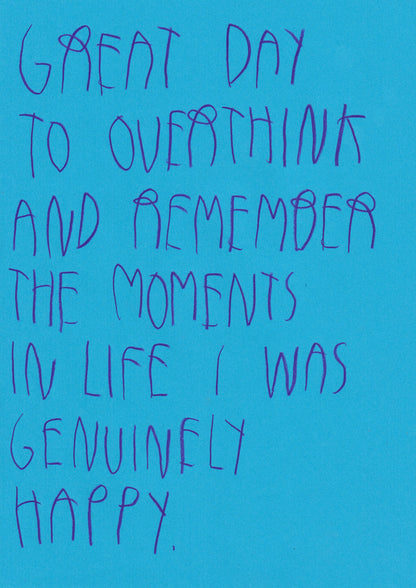 GREAT DAY
TO OVERTHINK
AND REMEMBER
THE MOMENTS
IN LIFE I WAS
GENUINELY
HAPPY.